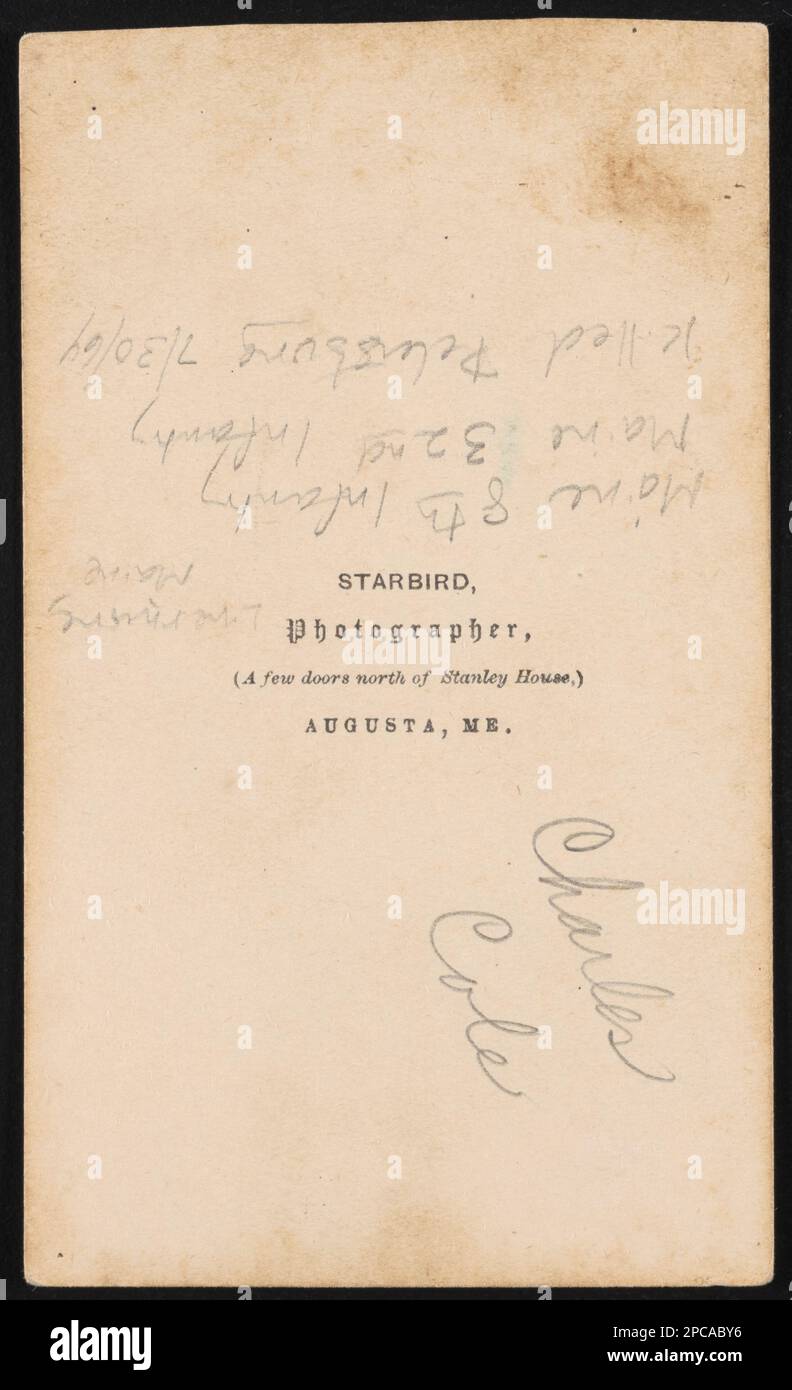 Killed Petersburg 7/30/64
Maine 32nd Infantry
Maine 8th Infantry
Livermore
Maine
STARBIRD,
Photographer,
(A few doors north of Stanley House,)
AUGUSTA, ME.
Charles
Cole
alamy
Image ID: 2PCABY6
www.alamy.com